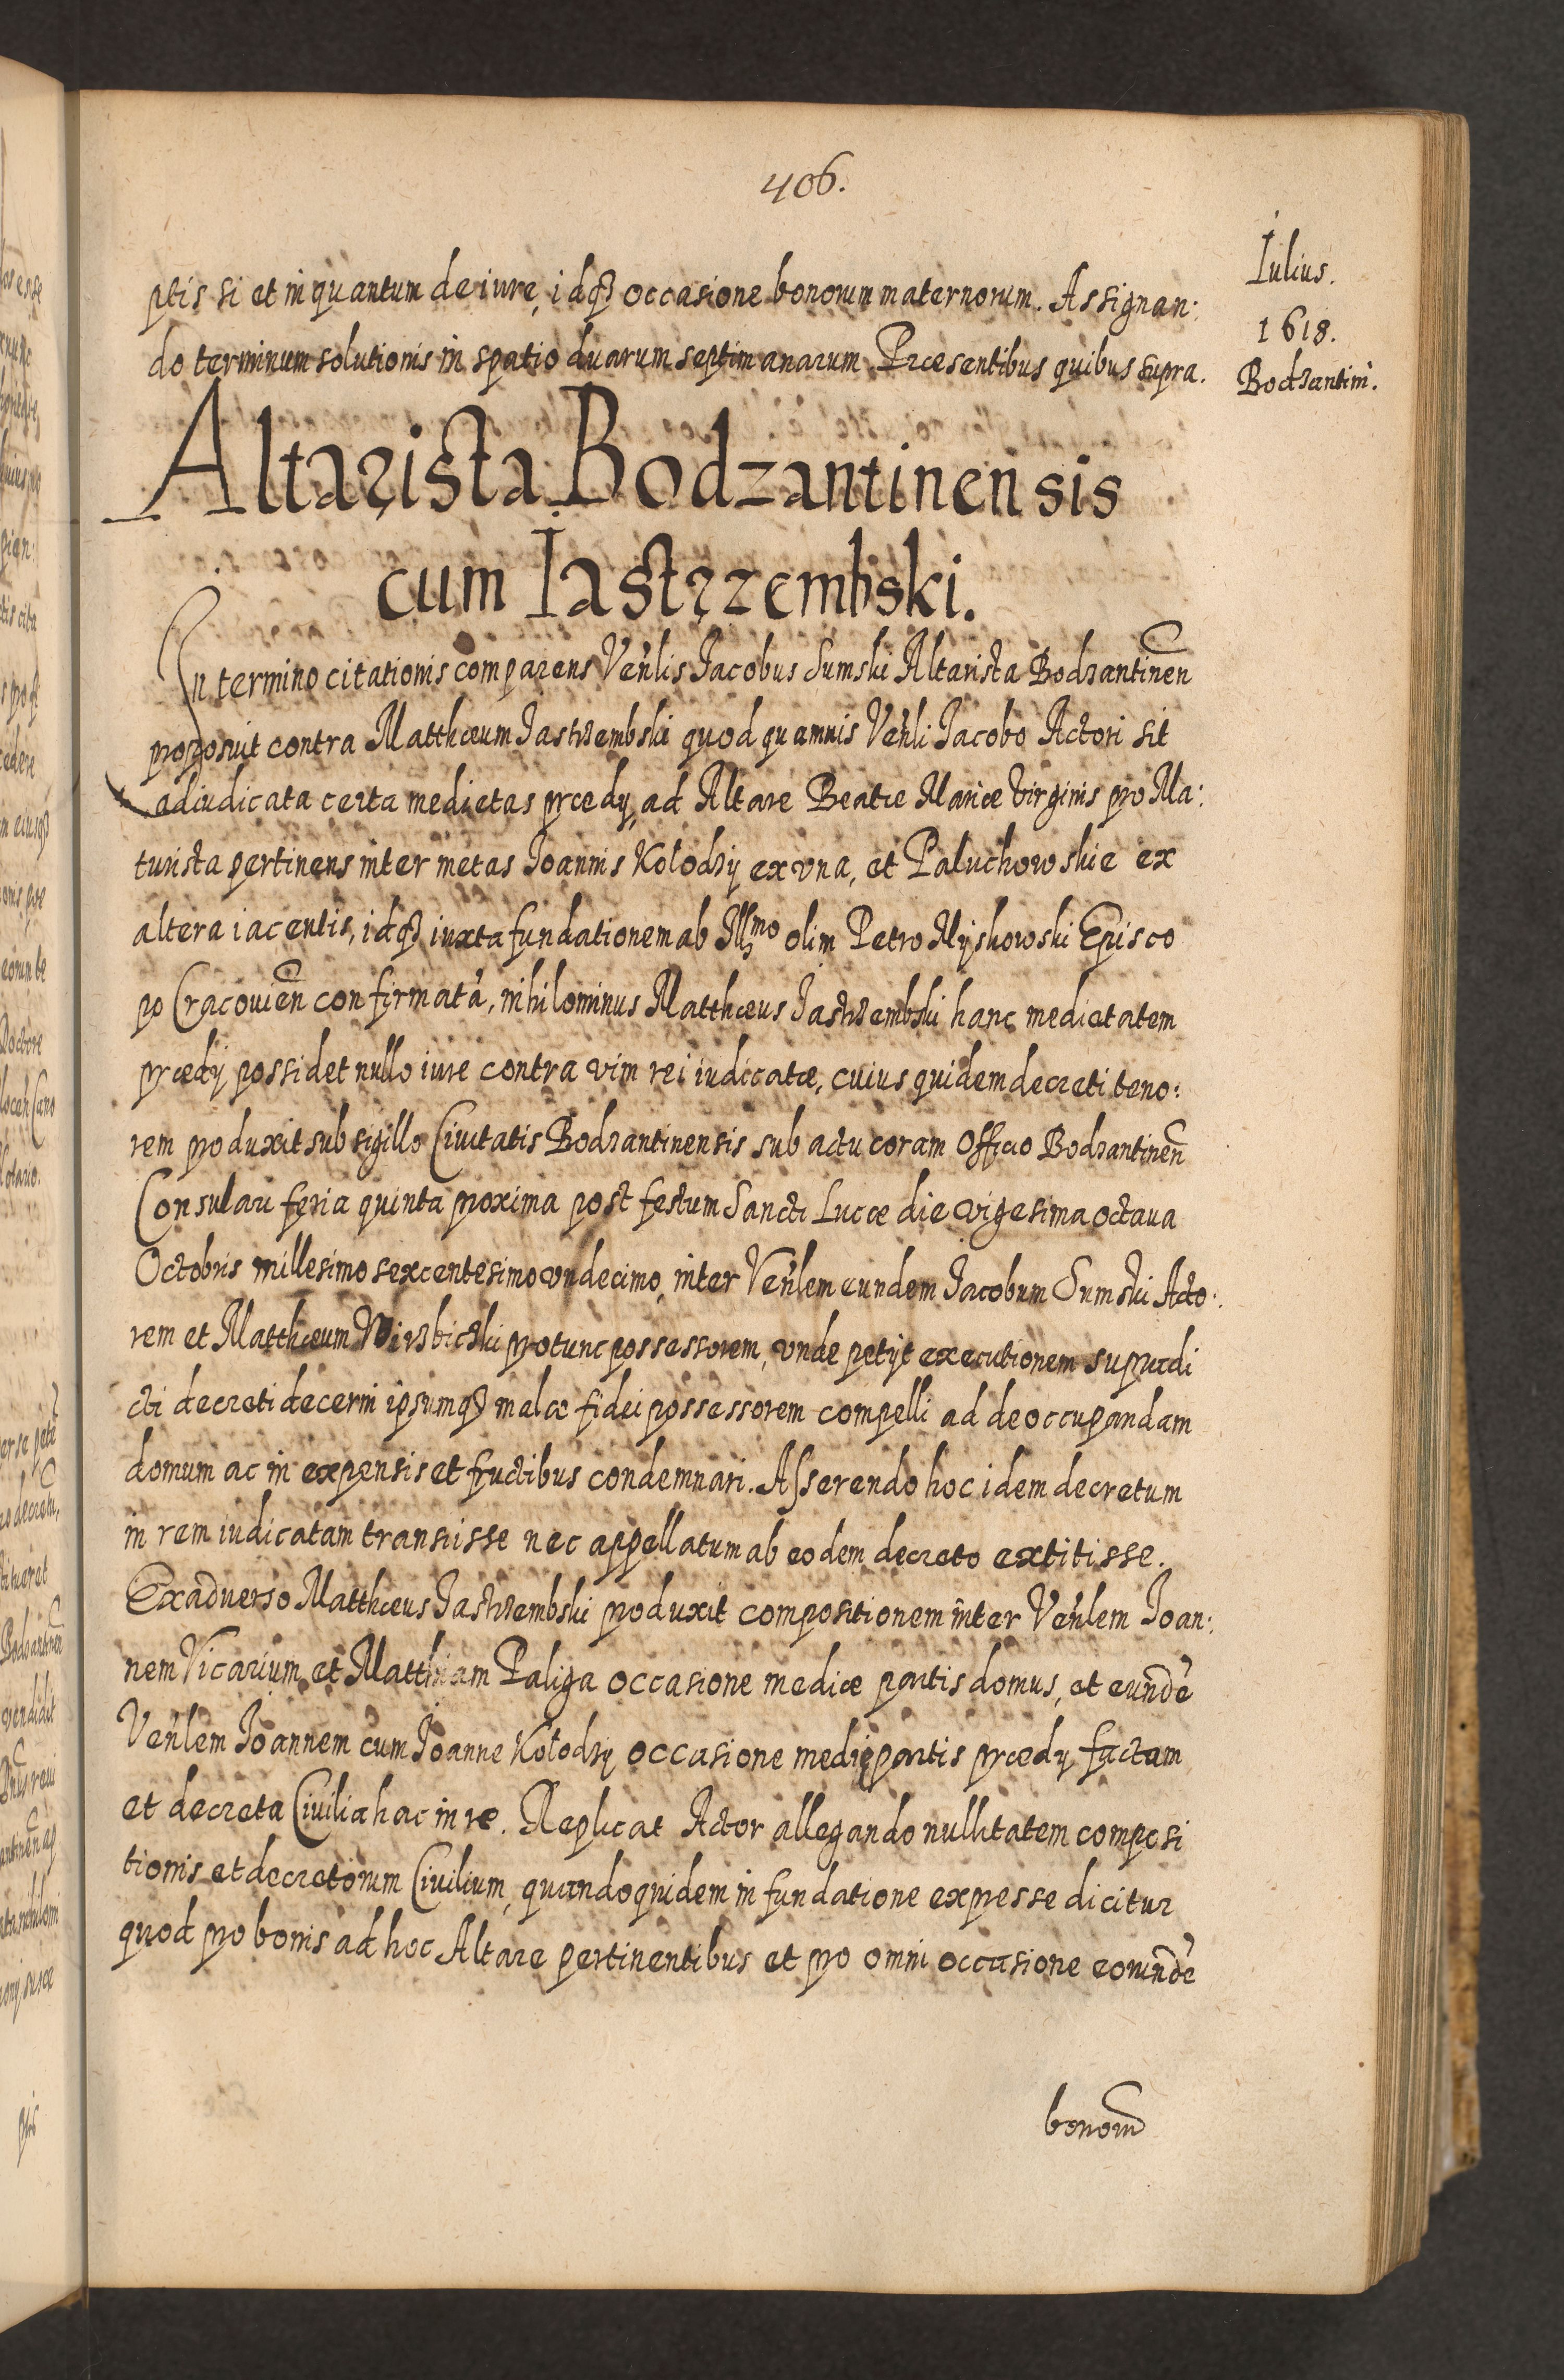 406.
Iulius.
1618.
Bodzantini.
ptis si et in quantum de iure, idq₃ occasione bonorum maternorum. Assignan:
do terminum solutionis in spatio duarum septimanarum Præsentibus quibus supra.
Altarista Bodzantinensis
cum Iastrzembski.
In termino citationis comparens Venlis Jacobus Sumski Altarista Bodzantinen
proposuit contra Matthæum Jastrzembski quod quamuis Venli Jacobo Actori sit
adiudicata certa medietas prædij ad Altare Beatæ Mariæ Virginis pro Ma:
turista pertinens inter metas Joannis Kołodzij ex vna, et Paluchowskie ex
altera iacentis, idq₃ iuxta fundationem ab Illmo olim Petro Myskowski Episco
po Cracouien confirmatã, nihilominus Matthæus Jastrzembski hanc medietatem
prædij possidet nullo iure contra vim rei iudicatæ, cuius quidem decreti teno:
rem produxit sub sigillo Ciuitatis Bodzantinensis sub actu coram Officio Bodzantinen
Consulari feria quinta proxima post festum Sancti Lucæ die vigesima octaua
Octobris millesimo sexcentesimo vndecimo, inter Venlem eundem Jacobum Sumski Acto:
rem et Matthæum Wirzbicski pro tunc possessorem, vnde petijt executionem supradi
cti decreti decerni ipsumq₃ malæ fidei possessorem compelli ad deoccupandam
domum ac in expensis et fructibus condemnari. Asserendo hoc idem decretum
in rem iudicatam transisse nec appellatum ab eodem decreto extitisse.
Exaduerso Matthæus Jastrzembski produxit compositionem inter Venlem Joan:
nem Vicarium et Matthiam Paliga occasione mediæ partis domus, et eundẽ
Venlem Joannem cum Joanne Kołodzij occasione mediæ partis prædij factam
et decreta Ciuilia hac in re. Replicat Actor allegando nullitatem composi
tionis et decretorum Ciuilium, quandoquidem in fundatione expresse dicitur
quod pro bonis ad hoc Altare pertinentibus et pro omni occasione eorundẽ
bonorũ